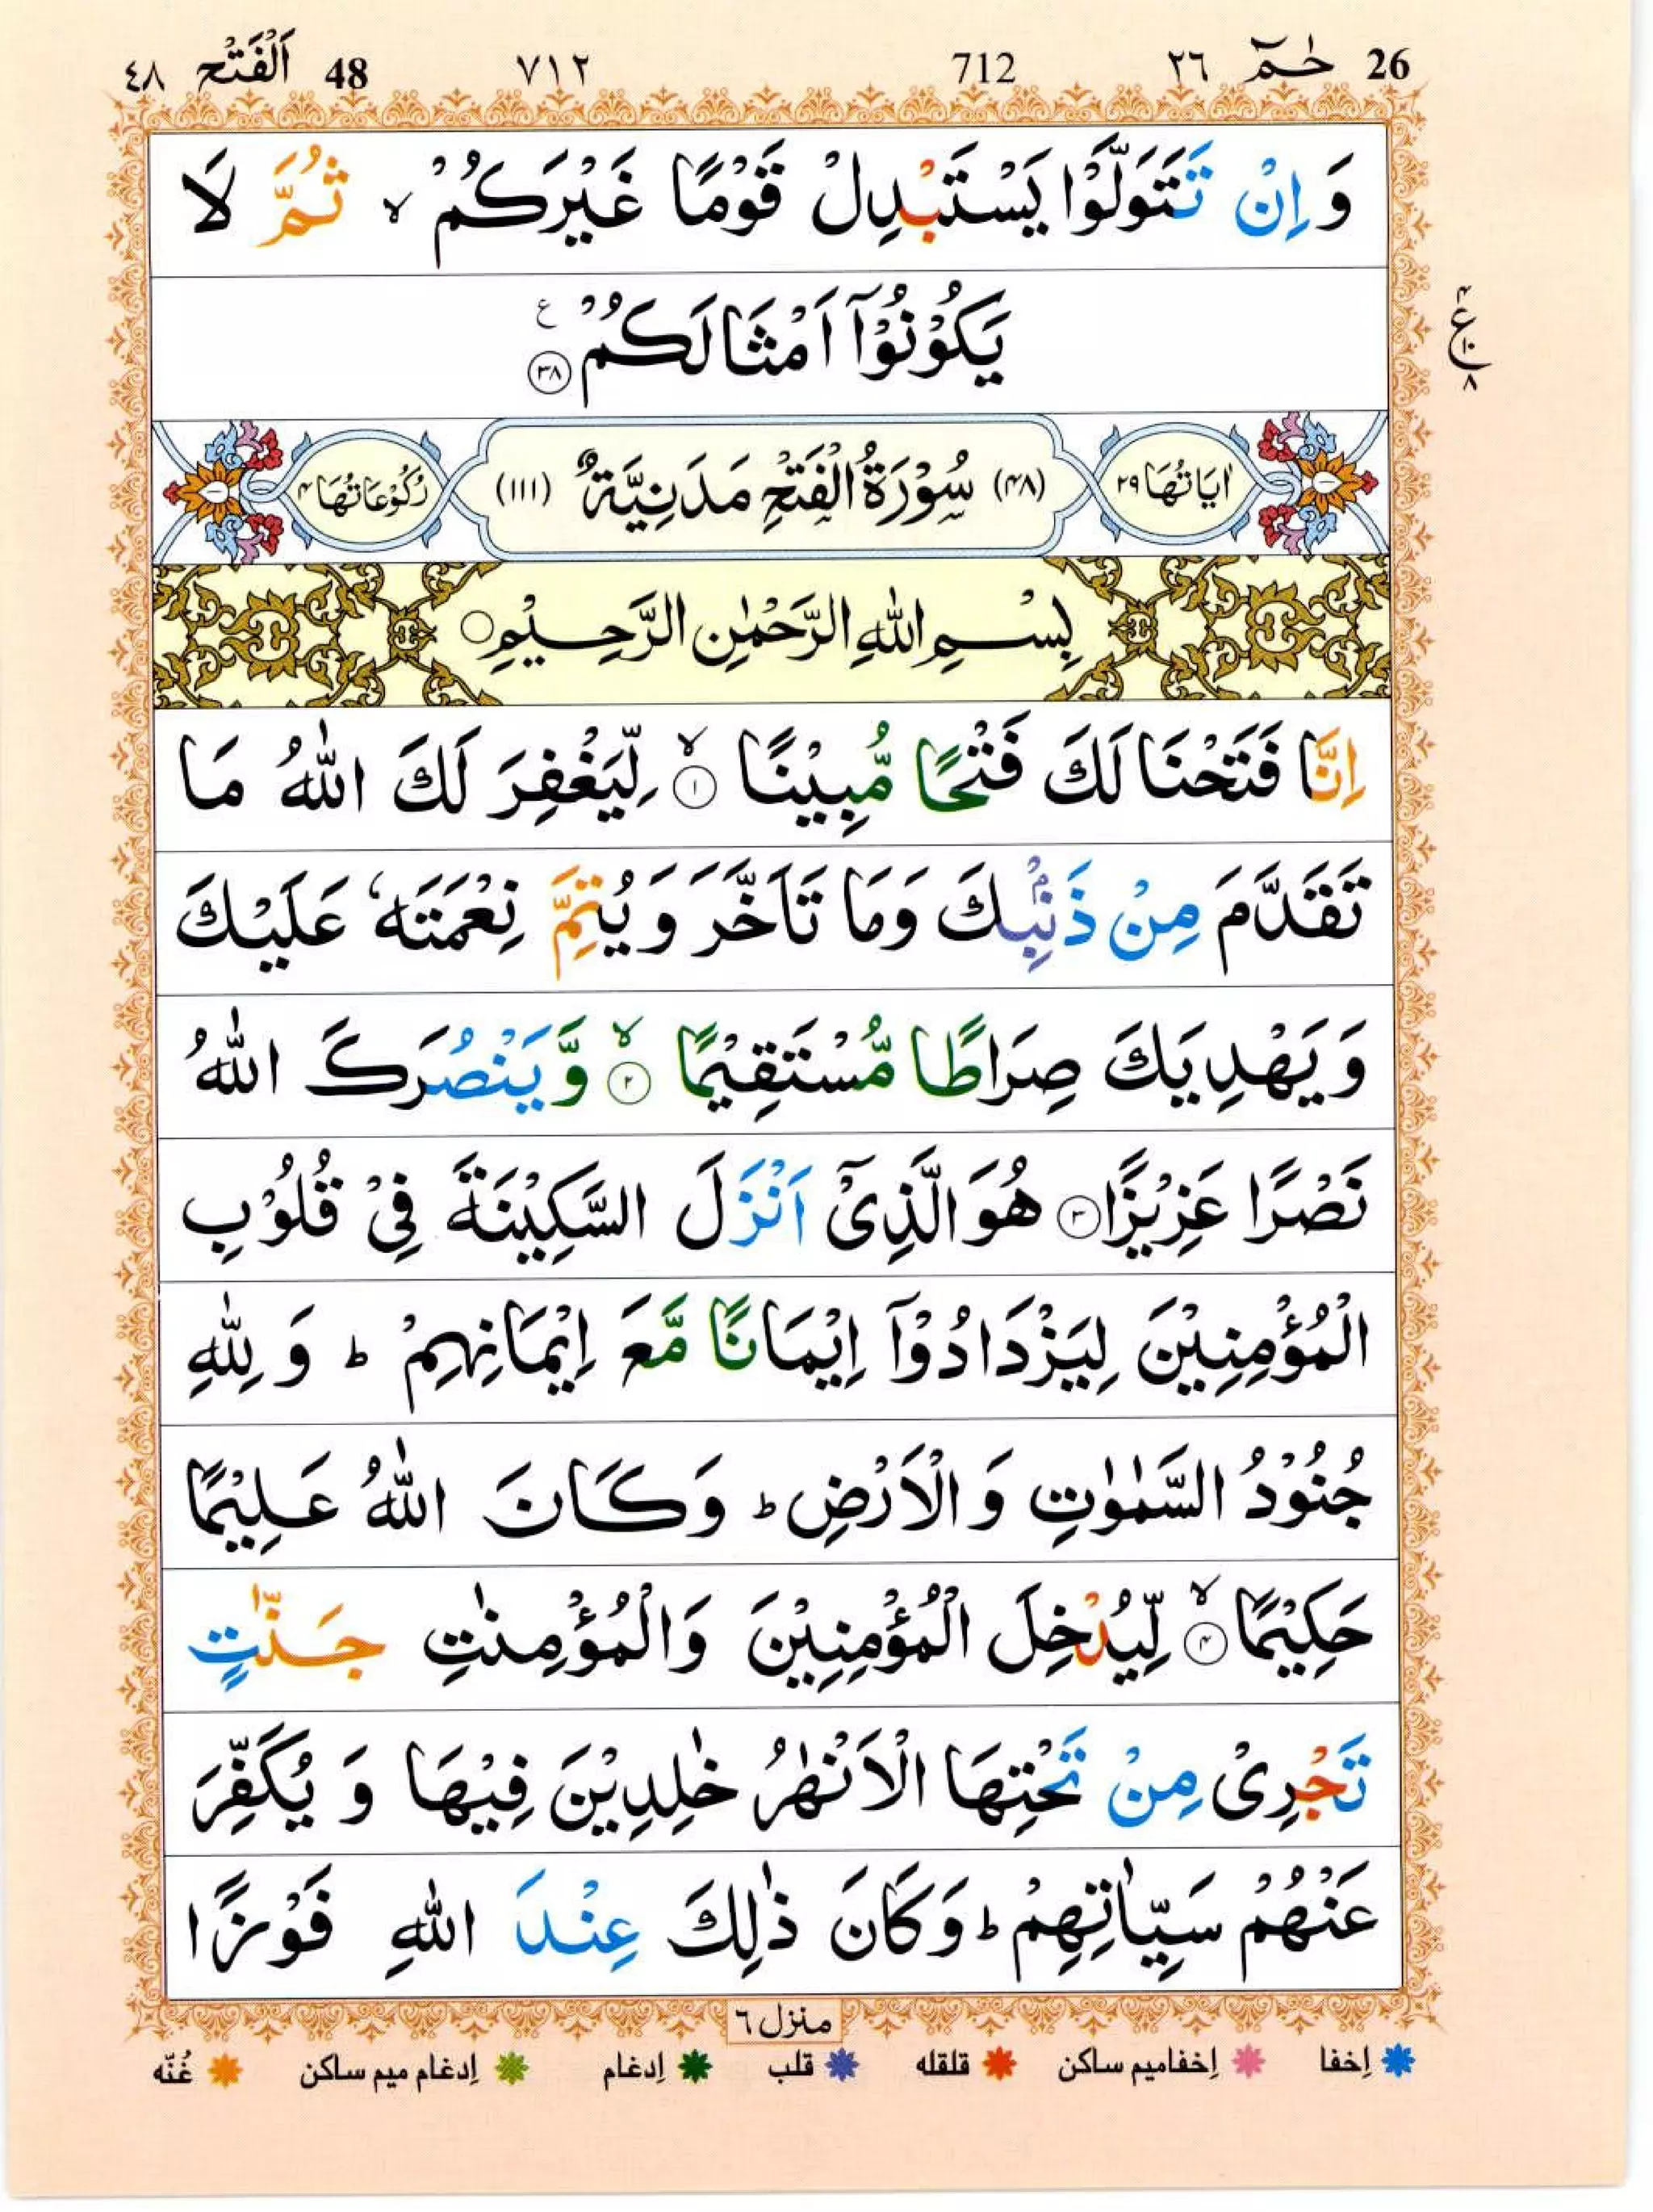 26 حٰمٓ ٢٦ 712 ٧١٢ 48 اَلْفَتْح ٤٨
وَاِنْ تَتَوَلَّوْا يَسْتَبْدِلْ قَوْمًا غَيْرَكُمْ ۙ ثُمَّ لَا
يَكُوْنُوْٓا اَمْثَالَكُمْ ۧ ﴿۳۸﴾
ع ۴ ۱۰ ۸
اٰيَاتُهَا ٢٩ (۴۸) سُوْرَةُ الْفَتْحِ مَدَنِيَّةٌ (۱۱۱) رُكُوْعَاتُهَا ۴
بِسْمِ اللّٰهِ الرَّحْمٰنِ الرَّحِيْمِ ○
اِنَّا فَتَحْنَا لَكَ فَتْحًا مُّبِيْنًا ۙ﴿۱﴾ لِّيَغْفِرَ لَكَ اللّٰهُ مَا
تَقَدَّمَ مِنْ ذَنْۢبِكَ وَمَا تَاَخَّرَ وَيُتِمَّ نِعْمَتَهٗ عَلَيْكَ
وَيَهْدِيَكَ صِرَاطًا مُّسْتَقِيْمًا ۙ﴿۲﴾ وَّيَنْصُرَكَ اللّٰهُ
نَصْرًا عَزِيْزًا ﴿۳﴾ هُوَ الَّذِيْٓ اَنْزَلَ السَّكِيْنَةَ فِيْ قُلُوْبِ
الْمُؤْمِنِيْنَ لِيَزْدَادُوْٓا اِيْمَانًا مَّعَ اِيْمَانِهِمْ ؕ وَلِلّٰهِ
جُنُوْدُ السَّمٰوٰتِ وَالْاَرْضِ ؕ وَكَانَ اللّٰهُ عَلِيْمًا
حَكِيْمًا ۙ﴿۴﴾ لِّيُدْخِلَ الْمُؤْمِنِيْنَ وَالْمُؤْمِنٰتِ جَنّٰتٍ
تَجْرِيْ مِنْ تَحْتِهَا الْاَنْهٰرُ خٰلِدِيْنَ فِيْهَا وَيُكَفِّرَ
عَنْهُمْ سَيِّاٰتِهِمْ ؕ وَكَانَ ذٰلِكَ عِنْدَ اللّٰهِ فَوْزًا
منزل ٦
اِخفا اِخفامیم ساکن قلقله قلب اِدغام اِدغام میم ساکن غُنّه